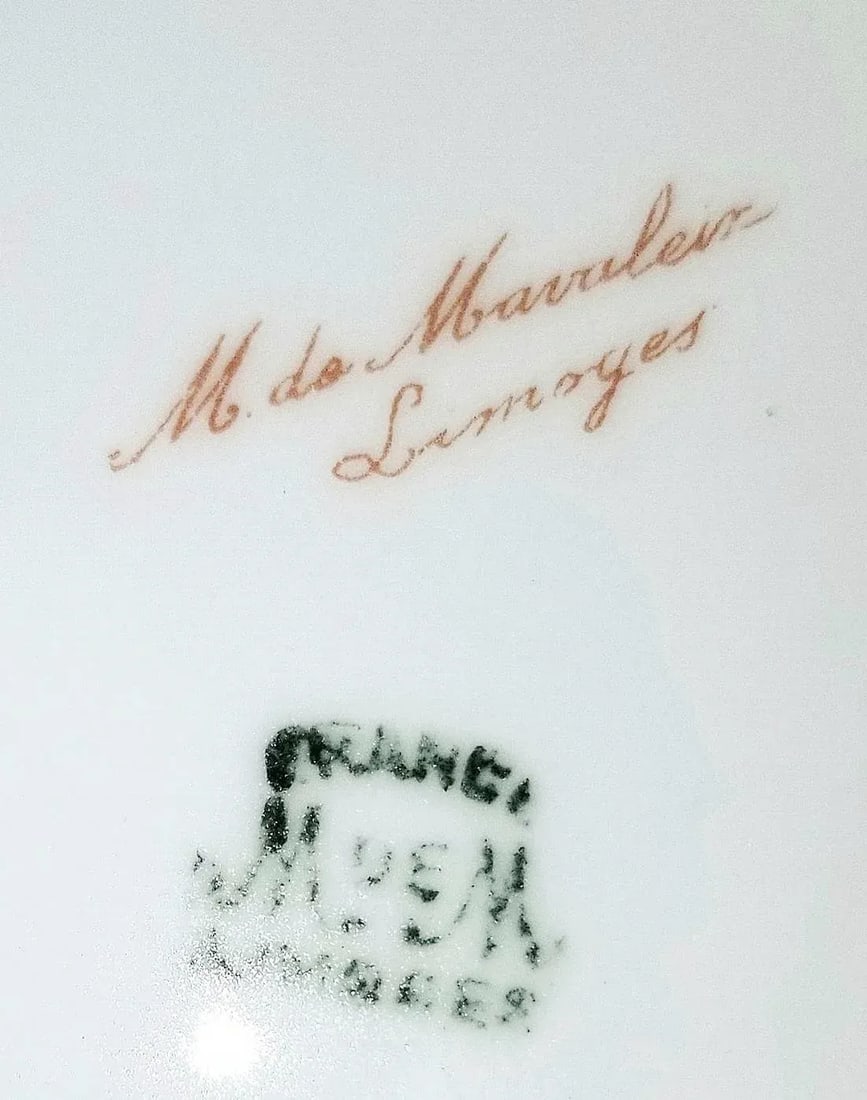 M. de Mavaleix
Limoges
FRANCE
M DE M
LIMOGES